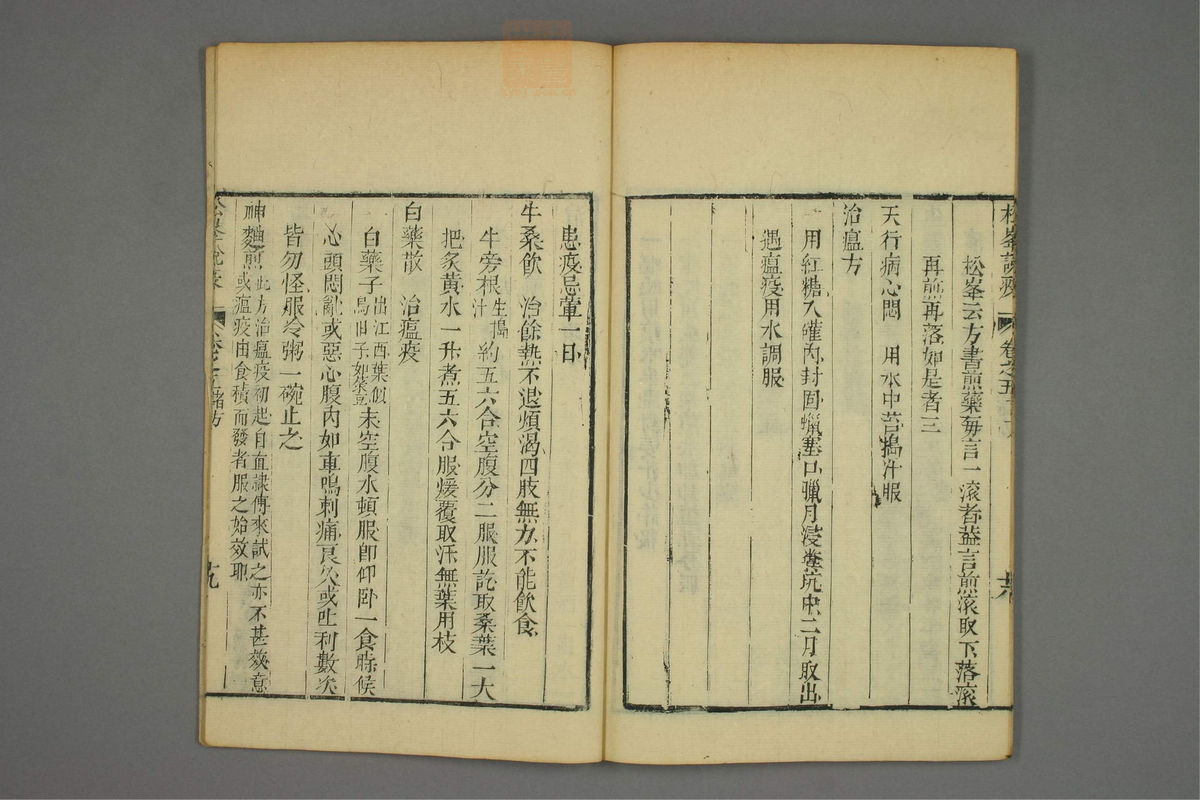 松峯說疫 卷之五
松峯云方書煎藥每言一滾者葢言煎滾取下落滾
再煎再落如是者三
天行病心悶 用水中苔搗汁服
治瘟方
用紅糖入罐內封固蠟塞口臘月浸糞坑中二月取出
遇瘟疫用水調服
患疫忌葷一日
牛桑飲 治餘熱不退煩渴四肢無力不能飲食
牛旁根生搗汁約五六合空腹分二服服訖取桑葉一大
把炙黃水一升煮五六合服煖覆取汗無葉用枝
白藥散 治瘟疫
白藥子出江西葉似烏臼子如菉豆末空腹水頓服卽仰臥一食時候
心頭悶亂或惡心腹內如車鳴刺痛良久或吐利數次
皆勿怪服冷粥一碗止之
神麯煎此方治瘟疫初起自直隸傳來試之亦不甚效意
或瘟疫由食積而發者服之始效耶
松峯說疫 諸方